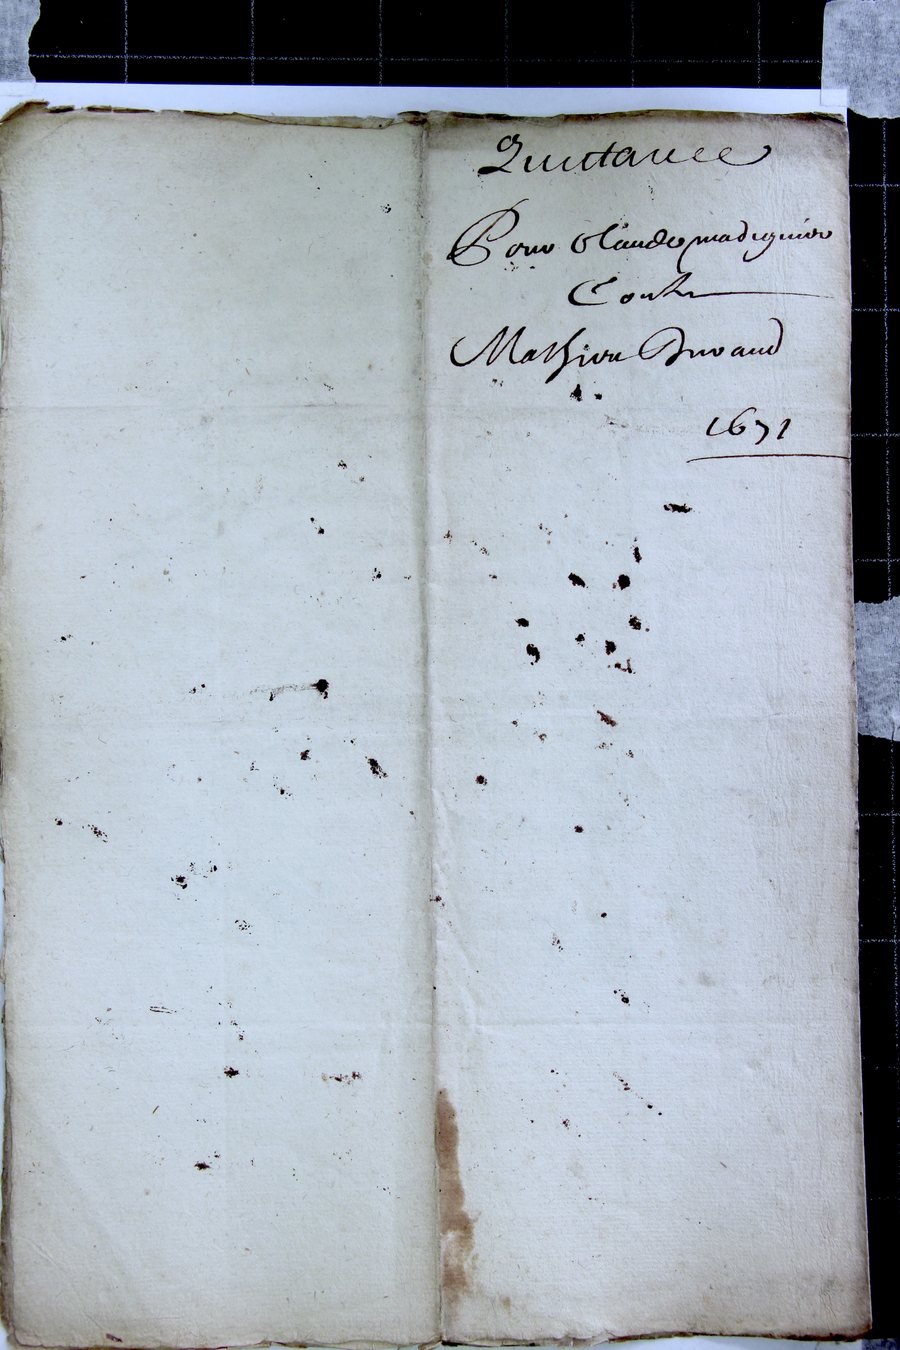 Quictance
Pour Claude madignier
Contre
Mathieu Durand
1671